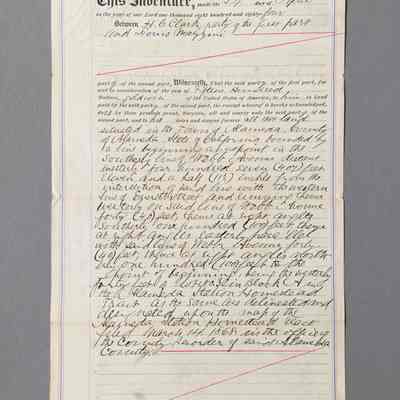 This Indenture, made the
in the year of our Lord one thousand eight hundred and eighty-four
Between H. C. Clark party of the first part
and Louis
part of the second part, Witnesseth, That the said party of the first part, for
and in consideration of the sum of Hundred
Dollars, of the United States of America, to in hand
paid by the said party of the second part, the receipt whereof is hereby acknowledged,
do by these presents grant, bargain, sell and convey unto the said party of the
second part, and to heirs and assigns forever, All that land
situated in the Town of Alameda County
of Alameda State of California bounded by
a line beginning at a point in the
Southerly line of Webb Avenue distant
westerly four hundred seven (407) feet
eleven and a half (11½) inches from the
intersection of said line with the western
line of Street and running thence
westerly on said line of Webb Avenue
forty (40) feet, thence at right angles
Southerly one hundred (100) feet thence
at right angles Easterly
with said line of Webb Avenue forty
(40) feet, thence at right angles
one hundred (100) feet to the
point of beginning, being the
forty feet of Lot in Block A of
the Alameda Station Homestead
Tract as the same are delineated and
upon the map of the
Alameda Station Homestead Tract
filed March 14 1868 in the office of
the County Recorder of said Alameda
County